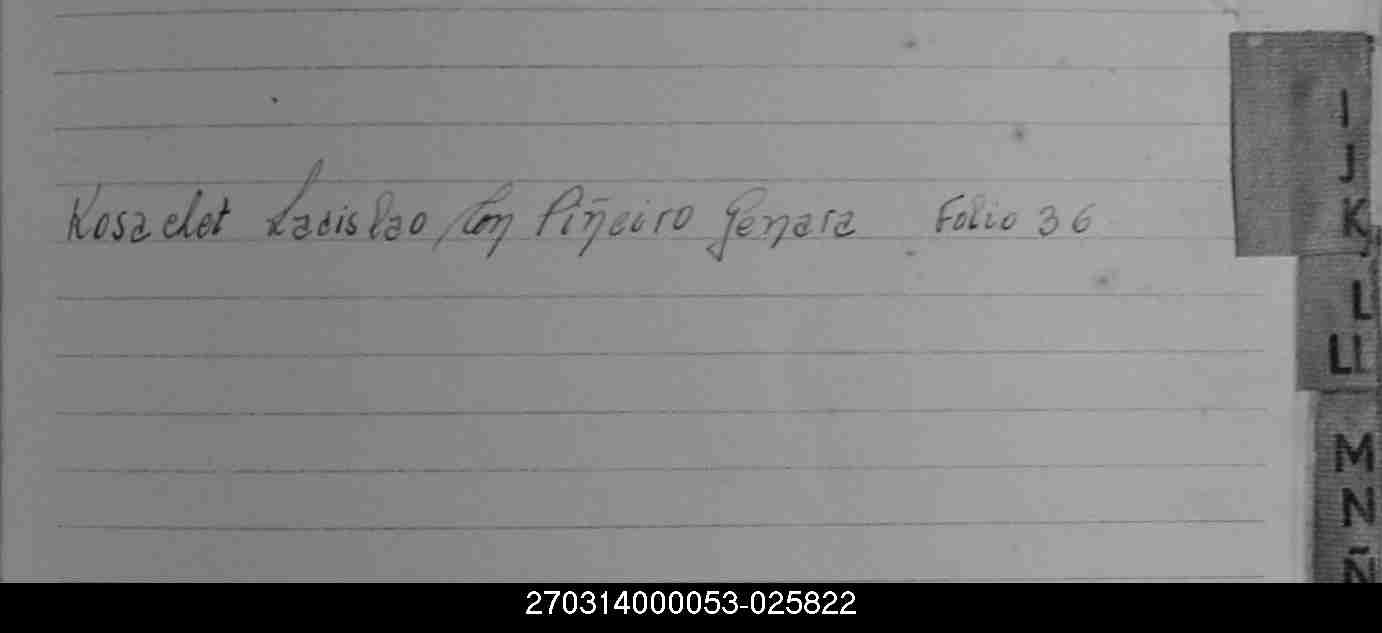 Kosaelet Ladislao con Piñeiro Genara Folio 36
I
J
K
L
LL
M
N
Ñ
270314000053-025822